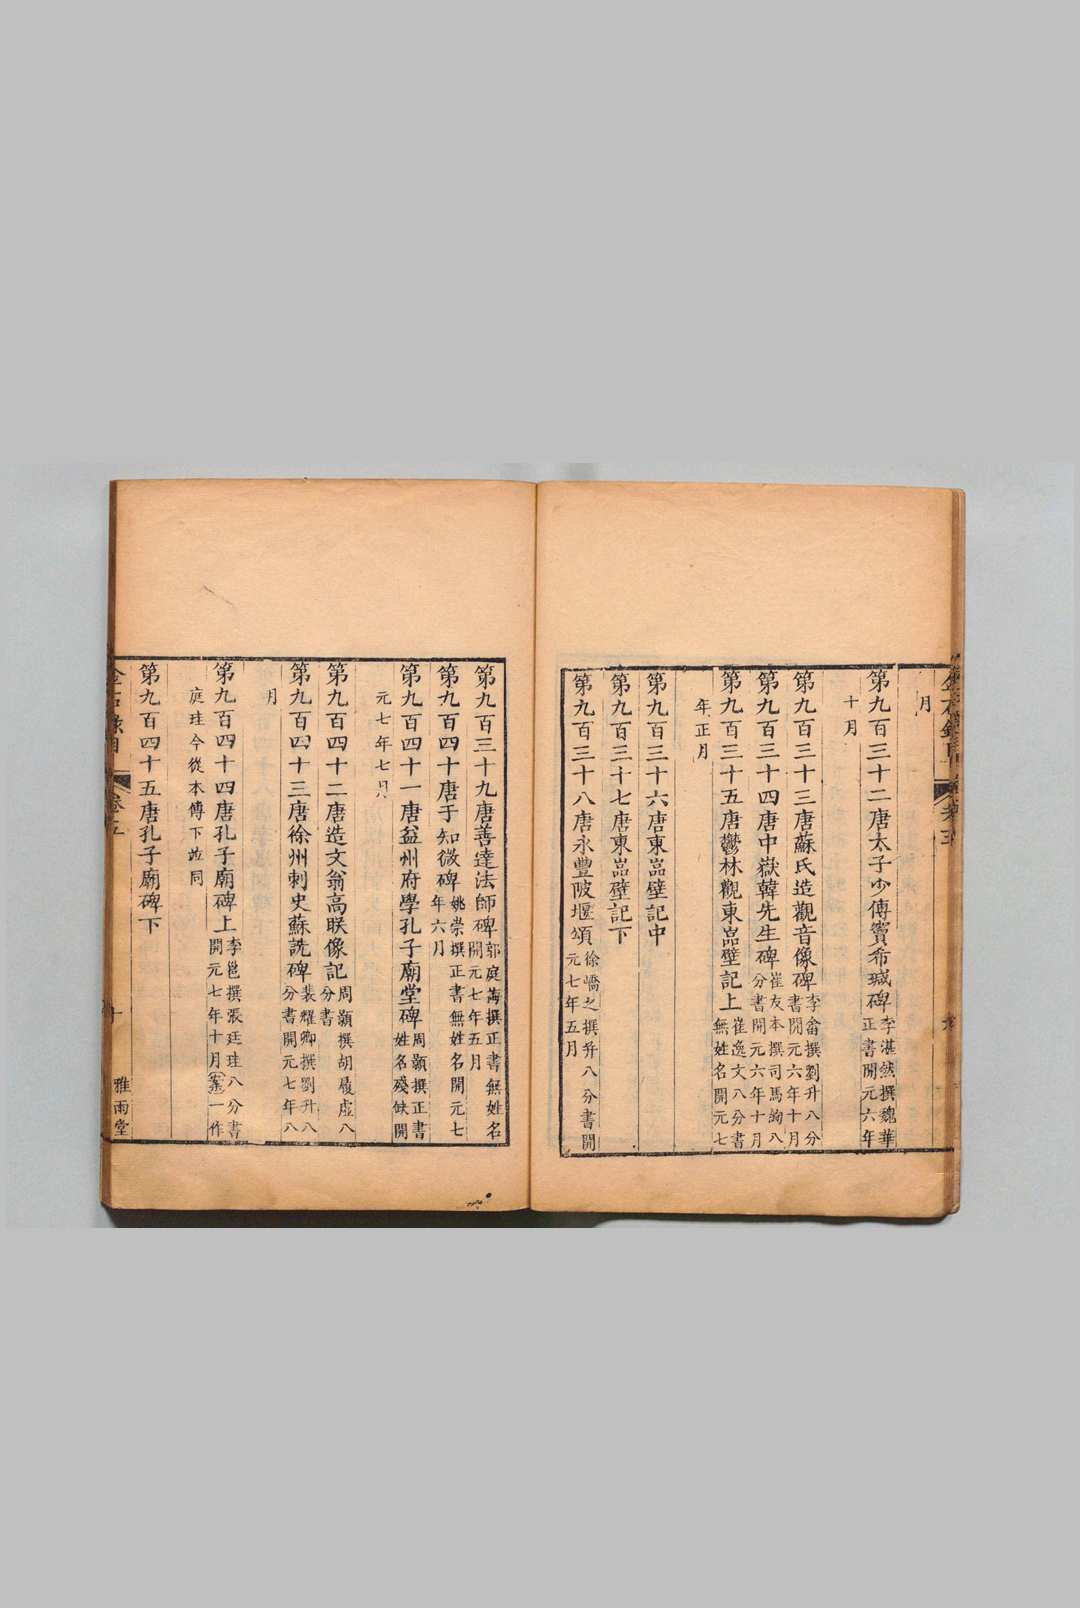 月
第九百三十二唐太子少傅竇希瑊碑李湛然撰魏華正書開元六年
十月
第九百三十三唐蘇氏造觀音像碑李畬撰劉升八分書開元六年十月
第九百三十四唐中嶽韓先生碑崔友本撰司馬詢八分書開元六年十月
第九百三十五唐鬱林觀東嵓壁記上崔逸文八分書無姓名開元七
年正月
第九百三十六唐東嵓壁記中
第九百三十七唐東嵓壁記下
第九百三十八唐永豐陂堰頌徐嶠之撰并八分書開元七年五月
第九百三十九唐善達法師碑郭庭誨撰正書無姓名開元七年五月
第九百四十唐于知微碑姚崇撰正書無姓名開元七年六月
第九百四十一唐益州府學孔子廟堂碑周顥撰正書姓名殘缺開
元七年七月
第九百四十二唐造文翁高䀢像記周顥撰胡履虛八分書
第九百四十三唐徐州刺史蘇詵碑裴耀卿撰劉升八分書開元七年八
月
第九百四十四唐孔子廟碑上李邕撰張廷珪八分書開元七年十月(案)一作
庭珪今從本傳下並同
第九百四十五唐孔子廟碑下
金石錄目
卷五
十
雅雨堂